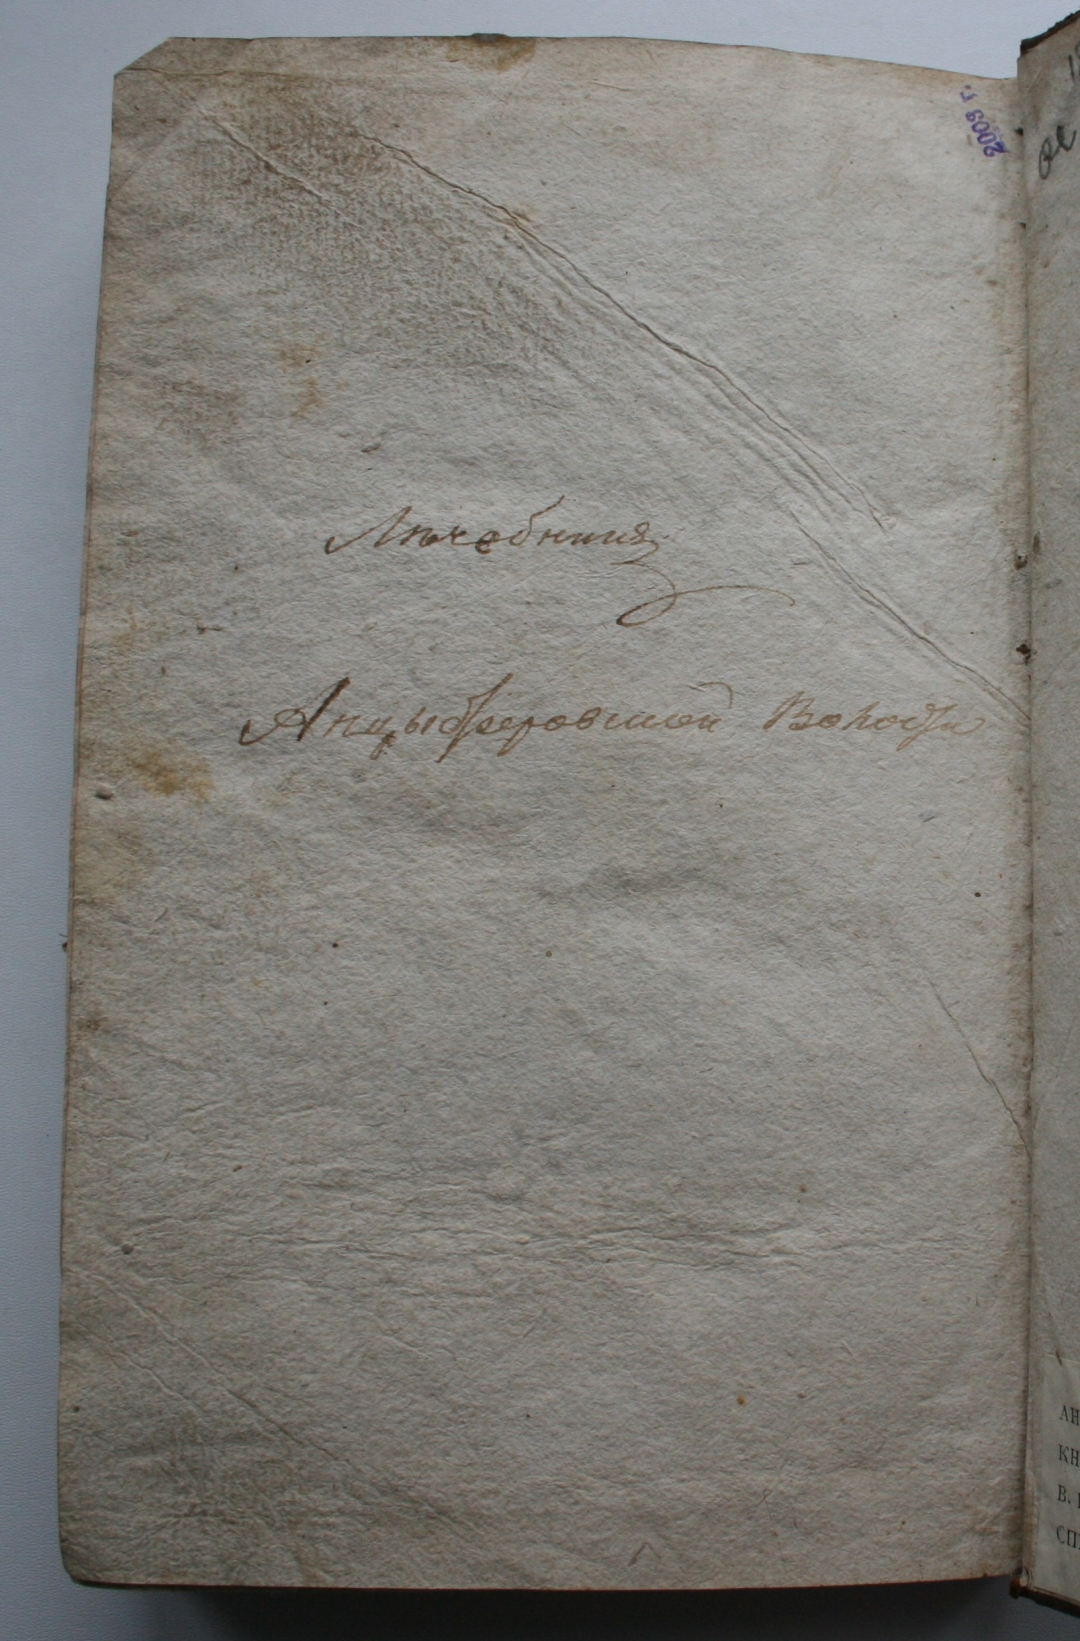 2009 г.
Лѣчебникъ
Анцыферовской Волости
АН
КН
В.
СП